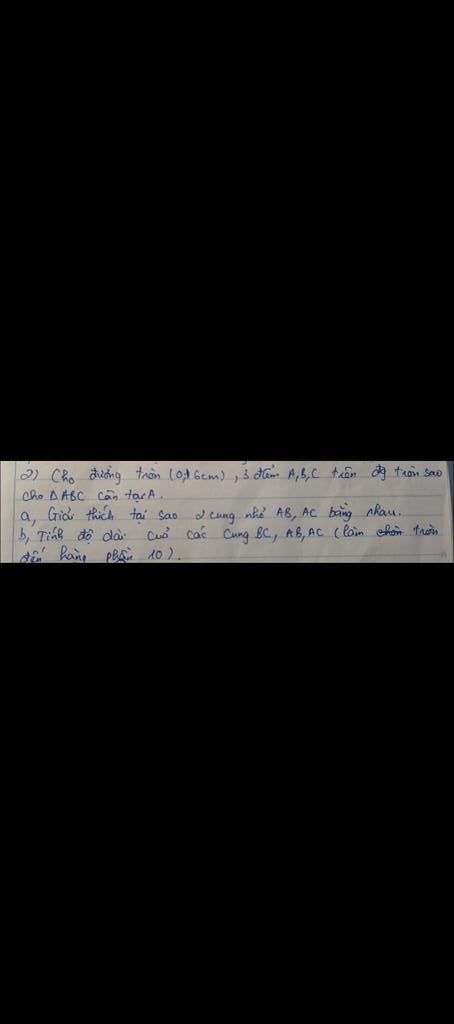 2) Cho đường tròn (0, 16cm), 3 điểm A,B,C trên đg tròn sao
cho ΔABC cân tại A.
a, Giải thích tại sao 2 cung nhỏ AB, AC bằng nhau.
b, Tính độ dài cuả các cung BC, AB, AC (làm tròn
đến hàng phần 10).